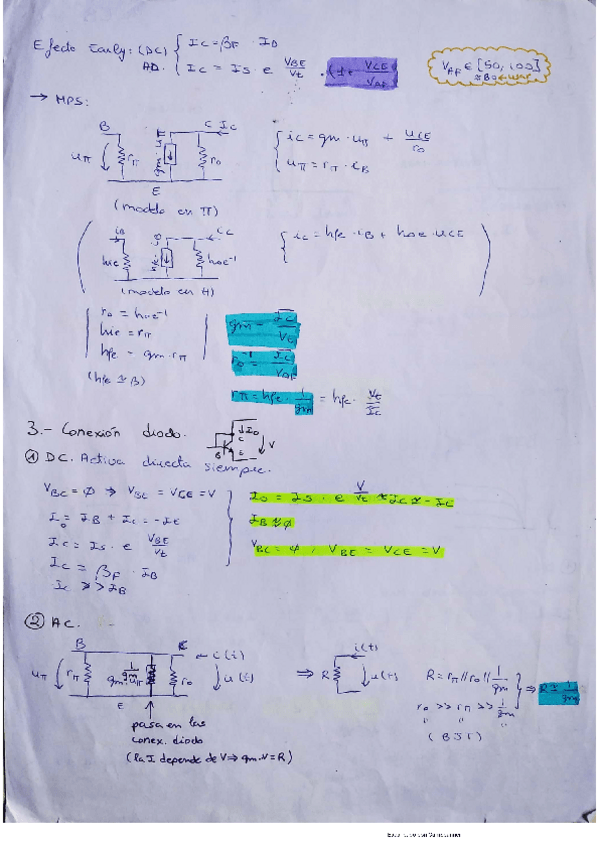 Efecto Early: (DC) { Ic = βF · IB
AD. { Ic = Is · e^(VBE/Vt) · (1 + VCE/VAF)
VAF ∈ [50, 100]
→ MPS:
B C Ic
uπ rπ gm·uπ ro
E
(modelo en π)
{ ic = gm · uπ + uCE/ro
uπ = rπ · iB
iB ic
hie hfe·iB hoe⁻¹
(modelo en H)
{ ic = hfe · iB + hoe · uCE
ro = hoe⁻¹
hie = rπ
hfe = gm · rπ
(hfe ≃ β)
gm = Ic/Vt
ro⁻¹ = Ic/VAF
rπ = hfe · 1/gm = hfe · Vt/Ic
3.- Conexión diodo.
↓ID C B E V
① DC. Activa directa siempre.
VBC = φ ⇒ VBE = VCE = V
ID = IB + Ic = -IE
Ic = Is · e^(VBE/Vt)
Ic = βF · IB
Ic >> IB
ID = Is · e^(V/Vt) ≈ Ic ≃ - IE
IB ≈ φ
VBC = φ , VBE = VCE = V
② AC.
B C ← i(t)
uπ rπ gm·uπ 1/gm ro u(t)
E
pasa en las
conex. diodo
(la I depende de V ⇒ gm·V = R)
⇒ R i(t) u(t)
R = rπ // ro // 1/gm
ro >> rπ >> 1/gm
(BJT)
⇒ R ≃ 1/gm